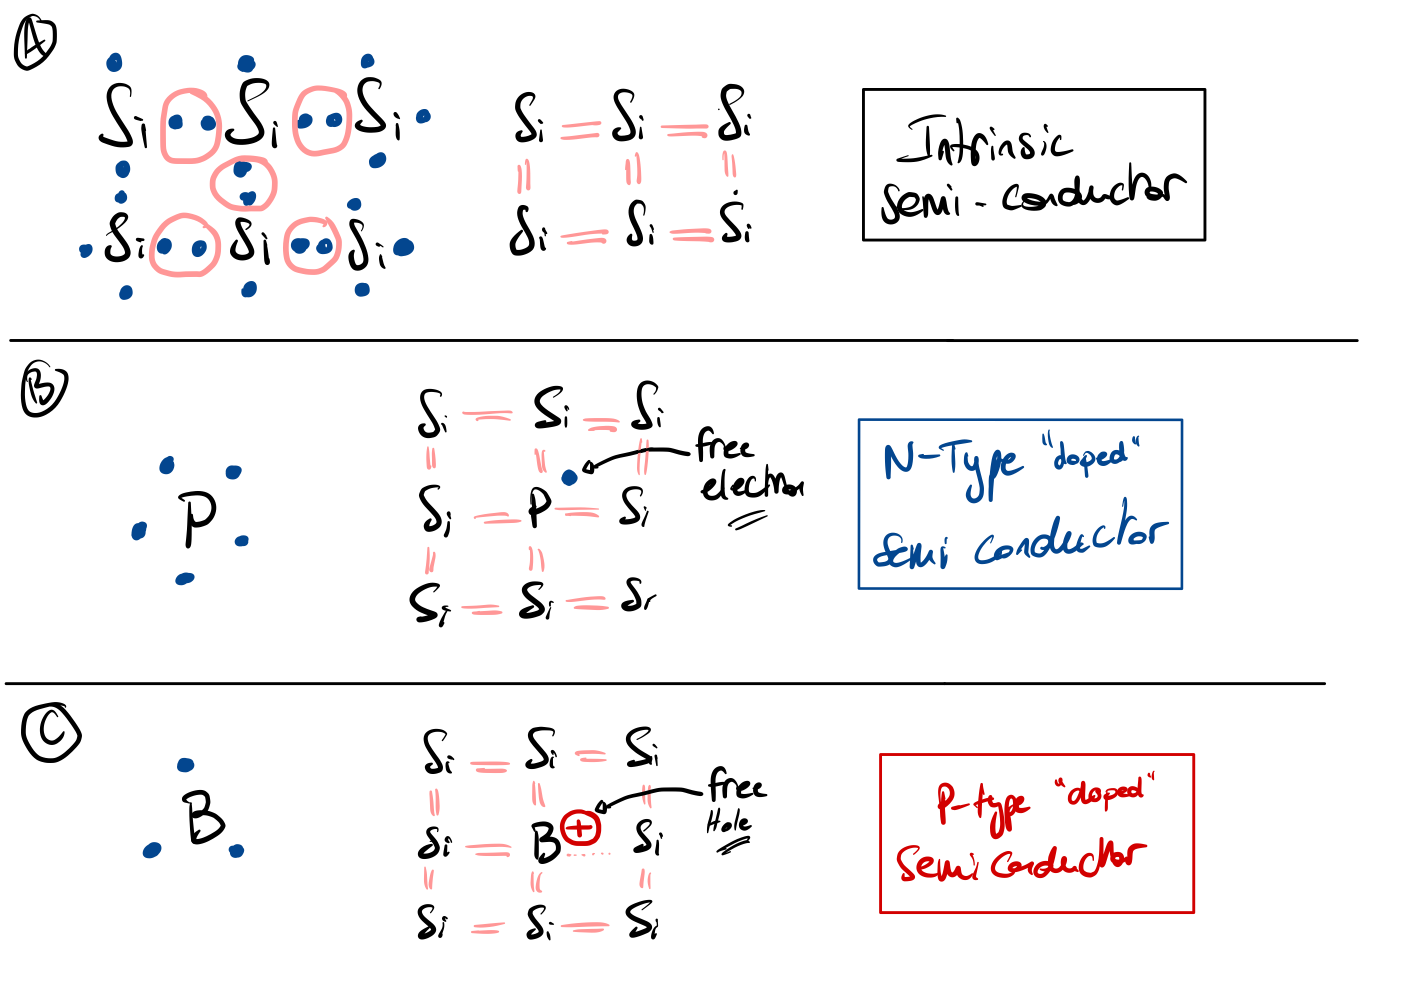 A
Si Si Si
Si Si Si
Si = Si = Si
Si = Si = Si
Intrinsic
semi-conductor
B
P
Si = Si = Si
Si = P = Si
Si = Si = Si
free
electron
N-Type "doped"
semi conductor
C
B
Si = Si = Si
Si = B + Si
Si = Si = Si
free
Hole
P-type "doped"
Semi conductor